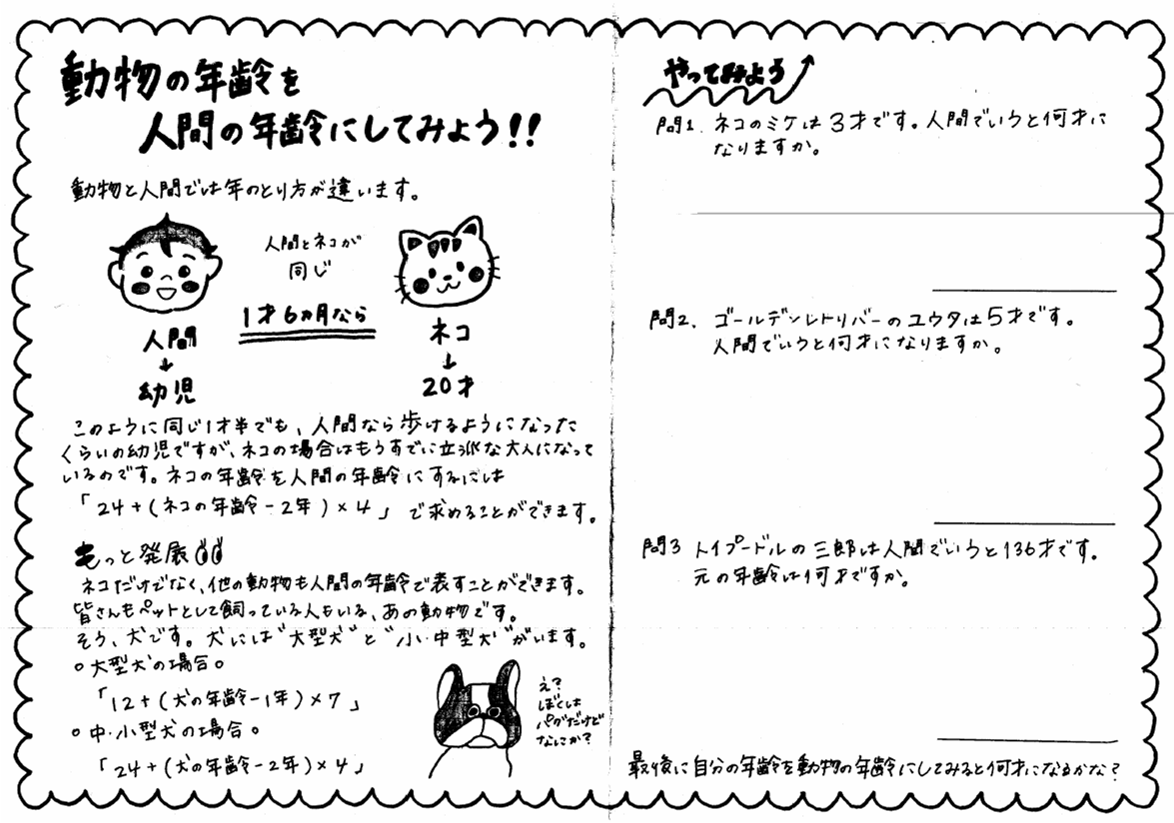 動物の年齢を
人間の年齢にしてみよう!!
動物と人間では年のとり方が違います。
人間とネコが
同じ
1才6カ月なら
人間
↓
幼児
ネコ
↓
20才
このように同じ1才半でも、人間なら歩けるようになった
くらいの幼児ですが、ネコの場合はもうすでに立派な大人になって
いるのです。ネコの年齢を人間の年齢にするには
「24+(ネコの年齢-2年)×4」で求めることができます。
もっと発展
ネコだけでなく、他の動物も人間の年齢で表すことができます。
皆さんもペットとして飼っている人もいる、あの動物です。
そう、犬です。犬には"大型犬"と"小・中型犬"がいます。
○大型犬の場合○
「12+(犬の年齢-1年)×7」
○中・小型犬の場合○
「24+(犬の年齢-2年)×4」
え?
ぼくは
パグだけど
なにか?
やってみよう
問1. ネコのミケは3才です。人間でいうと何才に
なりますか。
問2. ゴールデンレトリバーのユウタは5才です。
人間でいうと何才になりますか。
問3 トイプードルの三郎は人間でいうと136才です。
元の年齢は何才ですか。
最後に自分の年齢を動物の年齢にしてみると何才になるかな?